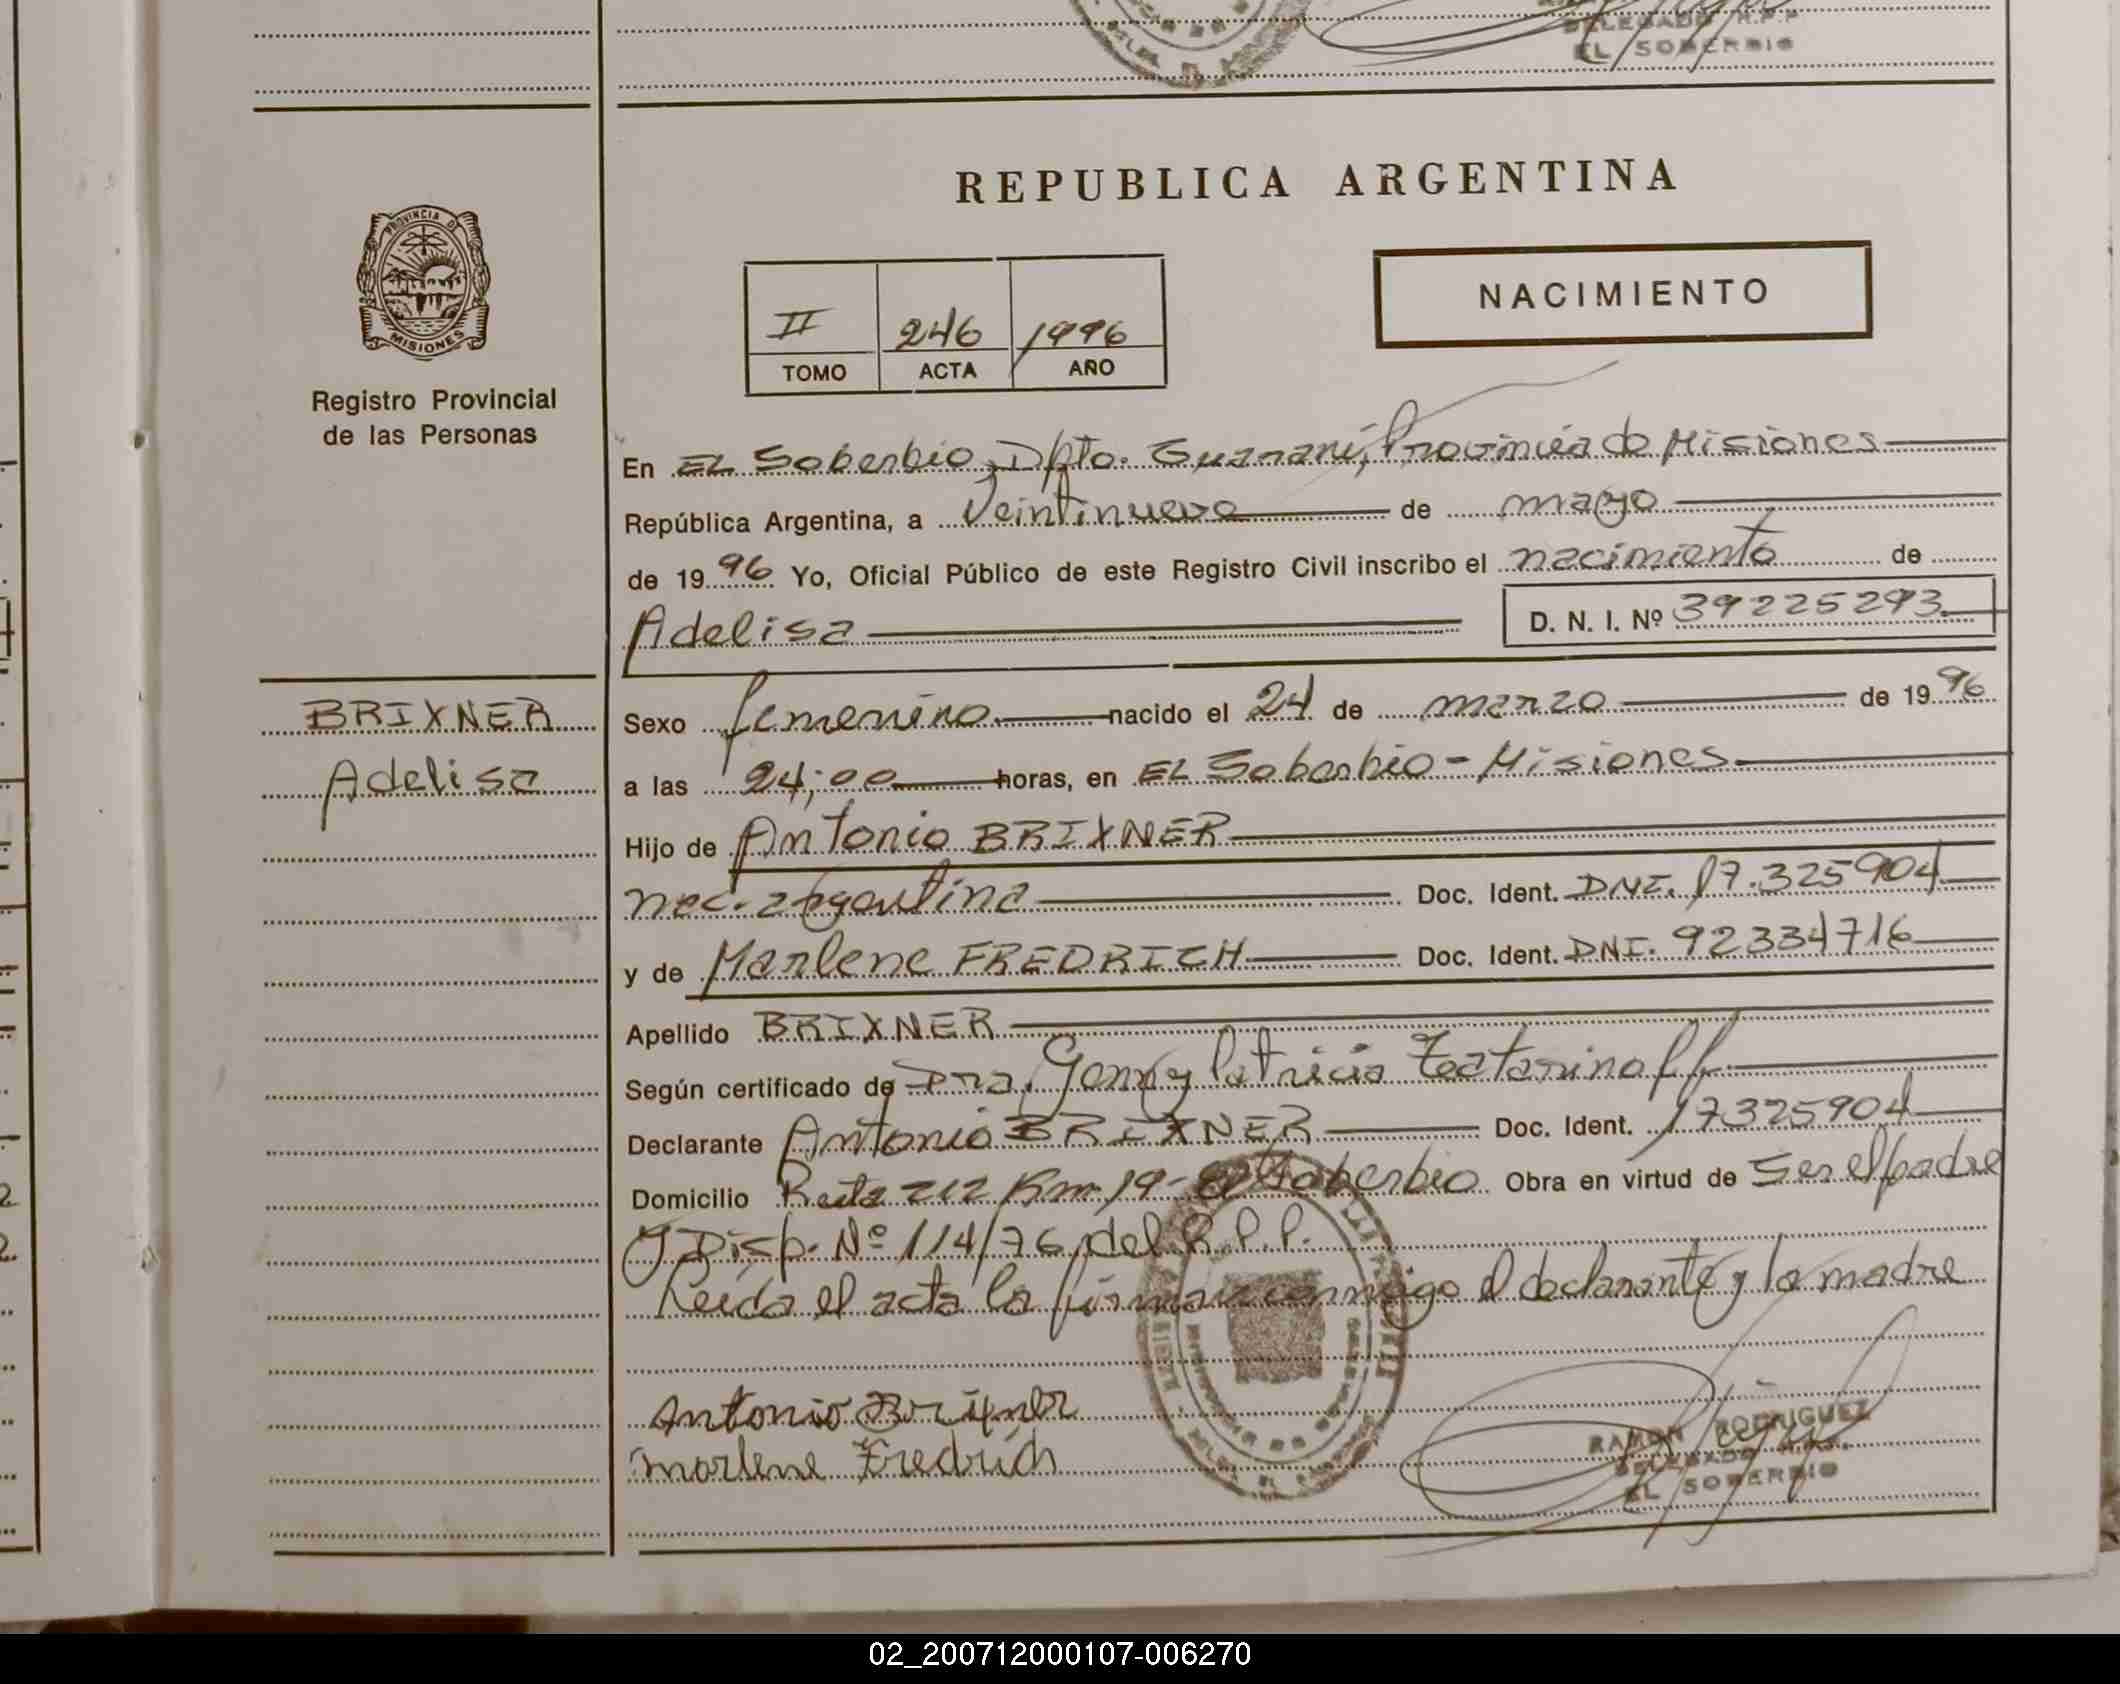 DELEGADO R.P.P
EL SOBERBIO
PROVINCIA DE
MISIONES
Registro Provincial
de las Personas
BRIXNER
Adelisa
REPUBLICA ARGENTINA
II 246 1996
TOMO ACTA AÑO
NACIMIENTO
En EL Soberbio, Dpto. Guaraní, Provincia de Misiones
República Argentina, a Veintinueve de mayo
de 1996 Yo, Oficial Público de este Registro Civil inscribo el nacimiento de
Adelisa D. N. I. Nº 39225293
Sexo femenino nacido el 24 de marzo de 1996
a las 24;00 horas, en EL Soberbio - Misiones
Hijo de Antonio BRIXNER
nac. argentina Doc. Ident. DNI. 17.325904
y de Marlene FREDRICH Doc. Ident. DNI. 92334716
Apellido BRIXNER
Según certificado de Dra. Patricia
Declarante Antonio BRIXNER Doc. Ident. 17325904
Domicilio Ruta 212 Km 19 - El Soberbio Obra en virtud de Ser el padre
y Disp. Nº 114/76, del R.P.P.
Leída el acta la firman conmigo el declarante y la madre
Antonio Brixner
Marlene Fredrich
RAMON RODRIGUEZ
DELEGADO
EL SOBERBIO
02_200712000107-006270